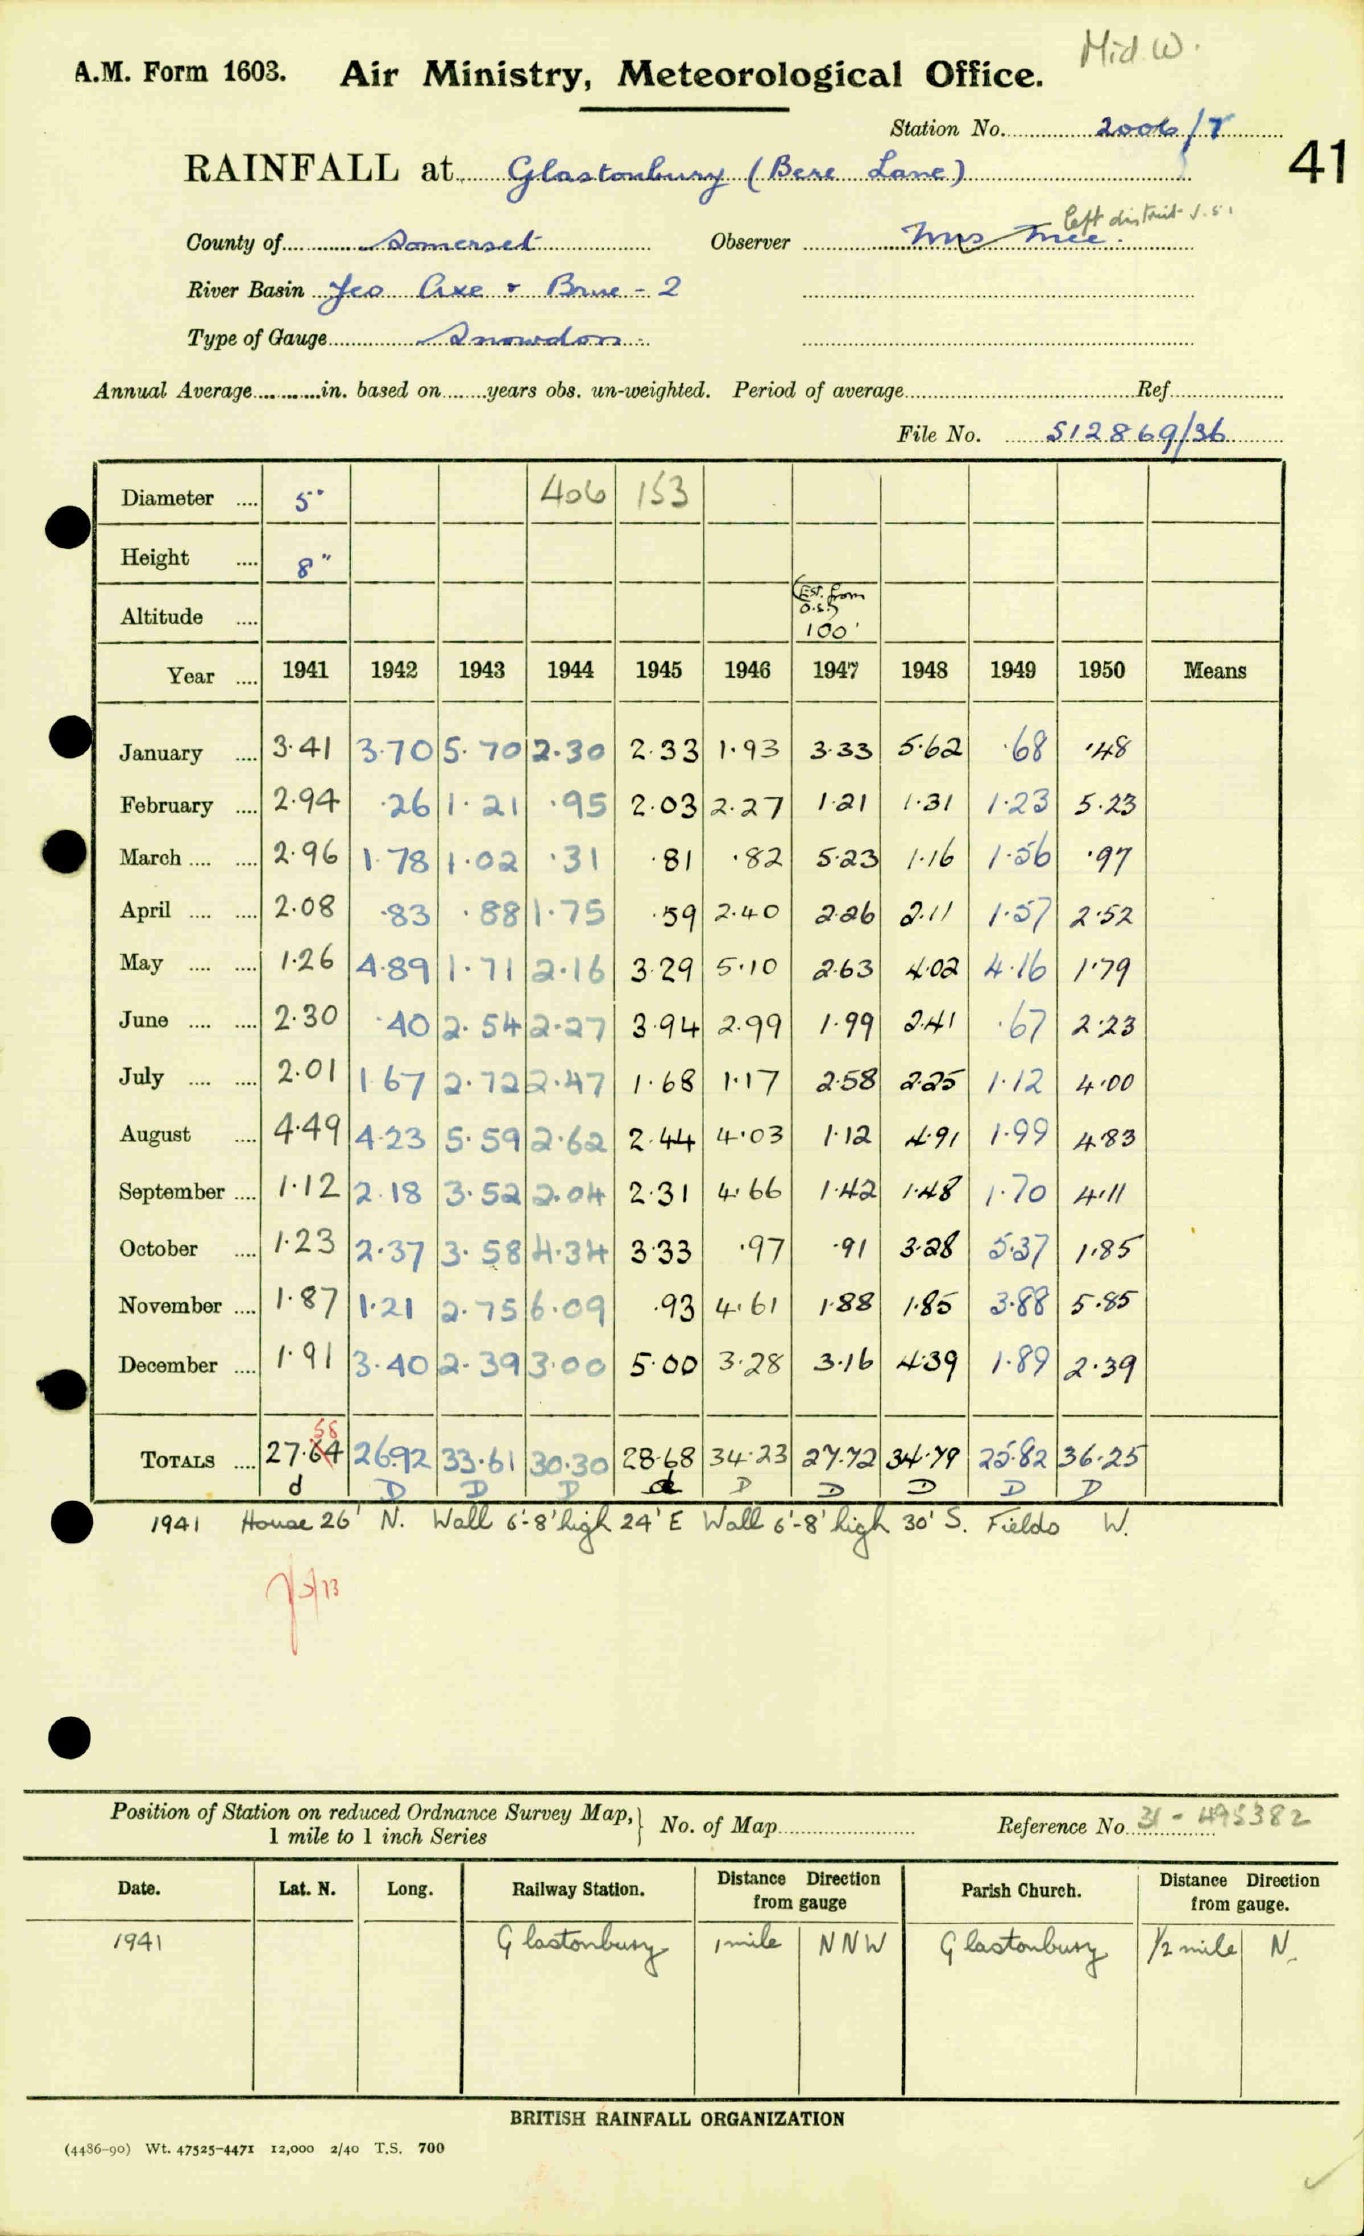 Mid. W.
A.M. Form 1603. Air Ministry, Meteorological Office.
Station No. 2006/7
41
RAINFALL at Glastonbury (Bere Lane)
left district
County of Somerset Observer Mrs Mee.
River Basin Yeo Axe & Brue - 2
Type of Gauge Snowdon
Annual Average in. based on years obs. un-weighted. Period of average Ref.
File No. 512869/36
Diameter 5" 406 153
Height 8"
Altitude (Est. from O.S.) 100'
Year 1941 1942 1943 1944 1945 1946 1947 1948 1949 1950 Means
January 3.41 3.70 5.70 2.30 2.33 1.93 3.33 5.62 .68 .48
February 2.94 .26 1.21 .95 2.03 2.27 1.21 1.31 1.23 5.23
March 2.96 1.78 1.02 .31 .81 .82 5.23 1.16 1.56 .97
April 2.08 .83 .88 1.75 .59 2.40 2.26 2.11 1.57 2.52
May 1.26 4.89 1.71 2.16 3.29 5.10 2.63 4.02 4.16 1.79
June 2.30 .40 2.54 2.27 3.94 2.99 1.99 2.41 .67 2.23
July 2.01 1.67 2.72 2.47 1.68 1.17 2.58 2.25 1.12 4.00
August 4.49 4.23 5.59 2.62 2.44 4.03 1.12 4.91 1.99 4.83
September 1.12 2.18 3.52 2.04 2.31 4.66 1.42 1.48 1.70 4.11
October 1.23 2.37 3.58 4.34 3.33 .97 .91 3.28 5.37 1.85
November 1.87 1.21 2.75 6.09 .93 4.61 1.88 1.85 3.88 5.85
December 1.91 3.40 2.39 3.00 5.00 3.28 3.16 4.39 1.89 2.39
58
TOTALS 27.64 26.92 33.61 30.30 28.68 34.23 27.72 34.79 25.82 36.25
d D D D d D D D D D
1941 House 26' N. Wall 6'-8' high 24' E Wall 6'-8' high 30' S. Fields W.
Position of Station on reduced Ordnance Survey Map, 1 mile to 1 inch Series No. of Map Reference No. 31 - 495382
Date. Lat. N. Long. Railway Station. Distance Direction from gauge Parish Church. Distance Direction from gauge.
1941 Glastonbury 1 mile NNW Glastonbury 1/2 mile N.
BRITISH RAINFALL ORGANIZATION
(4486-90) Wt. 47525-4471 12,000 2/40 T.S. 700